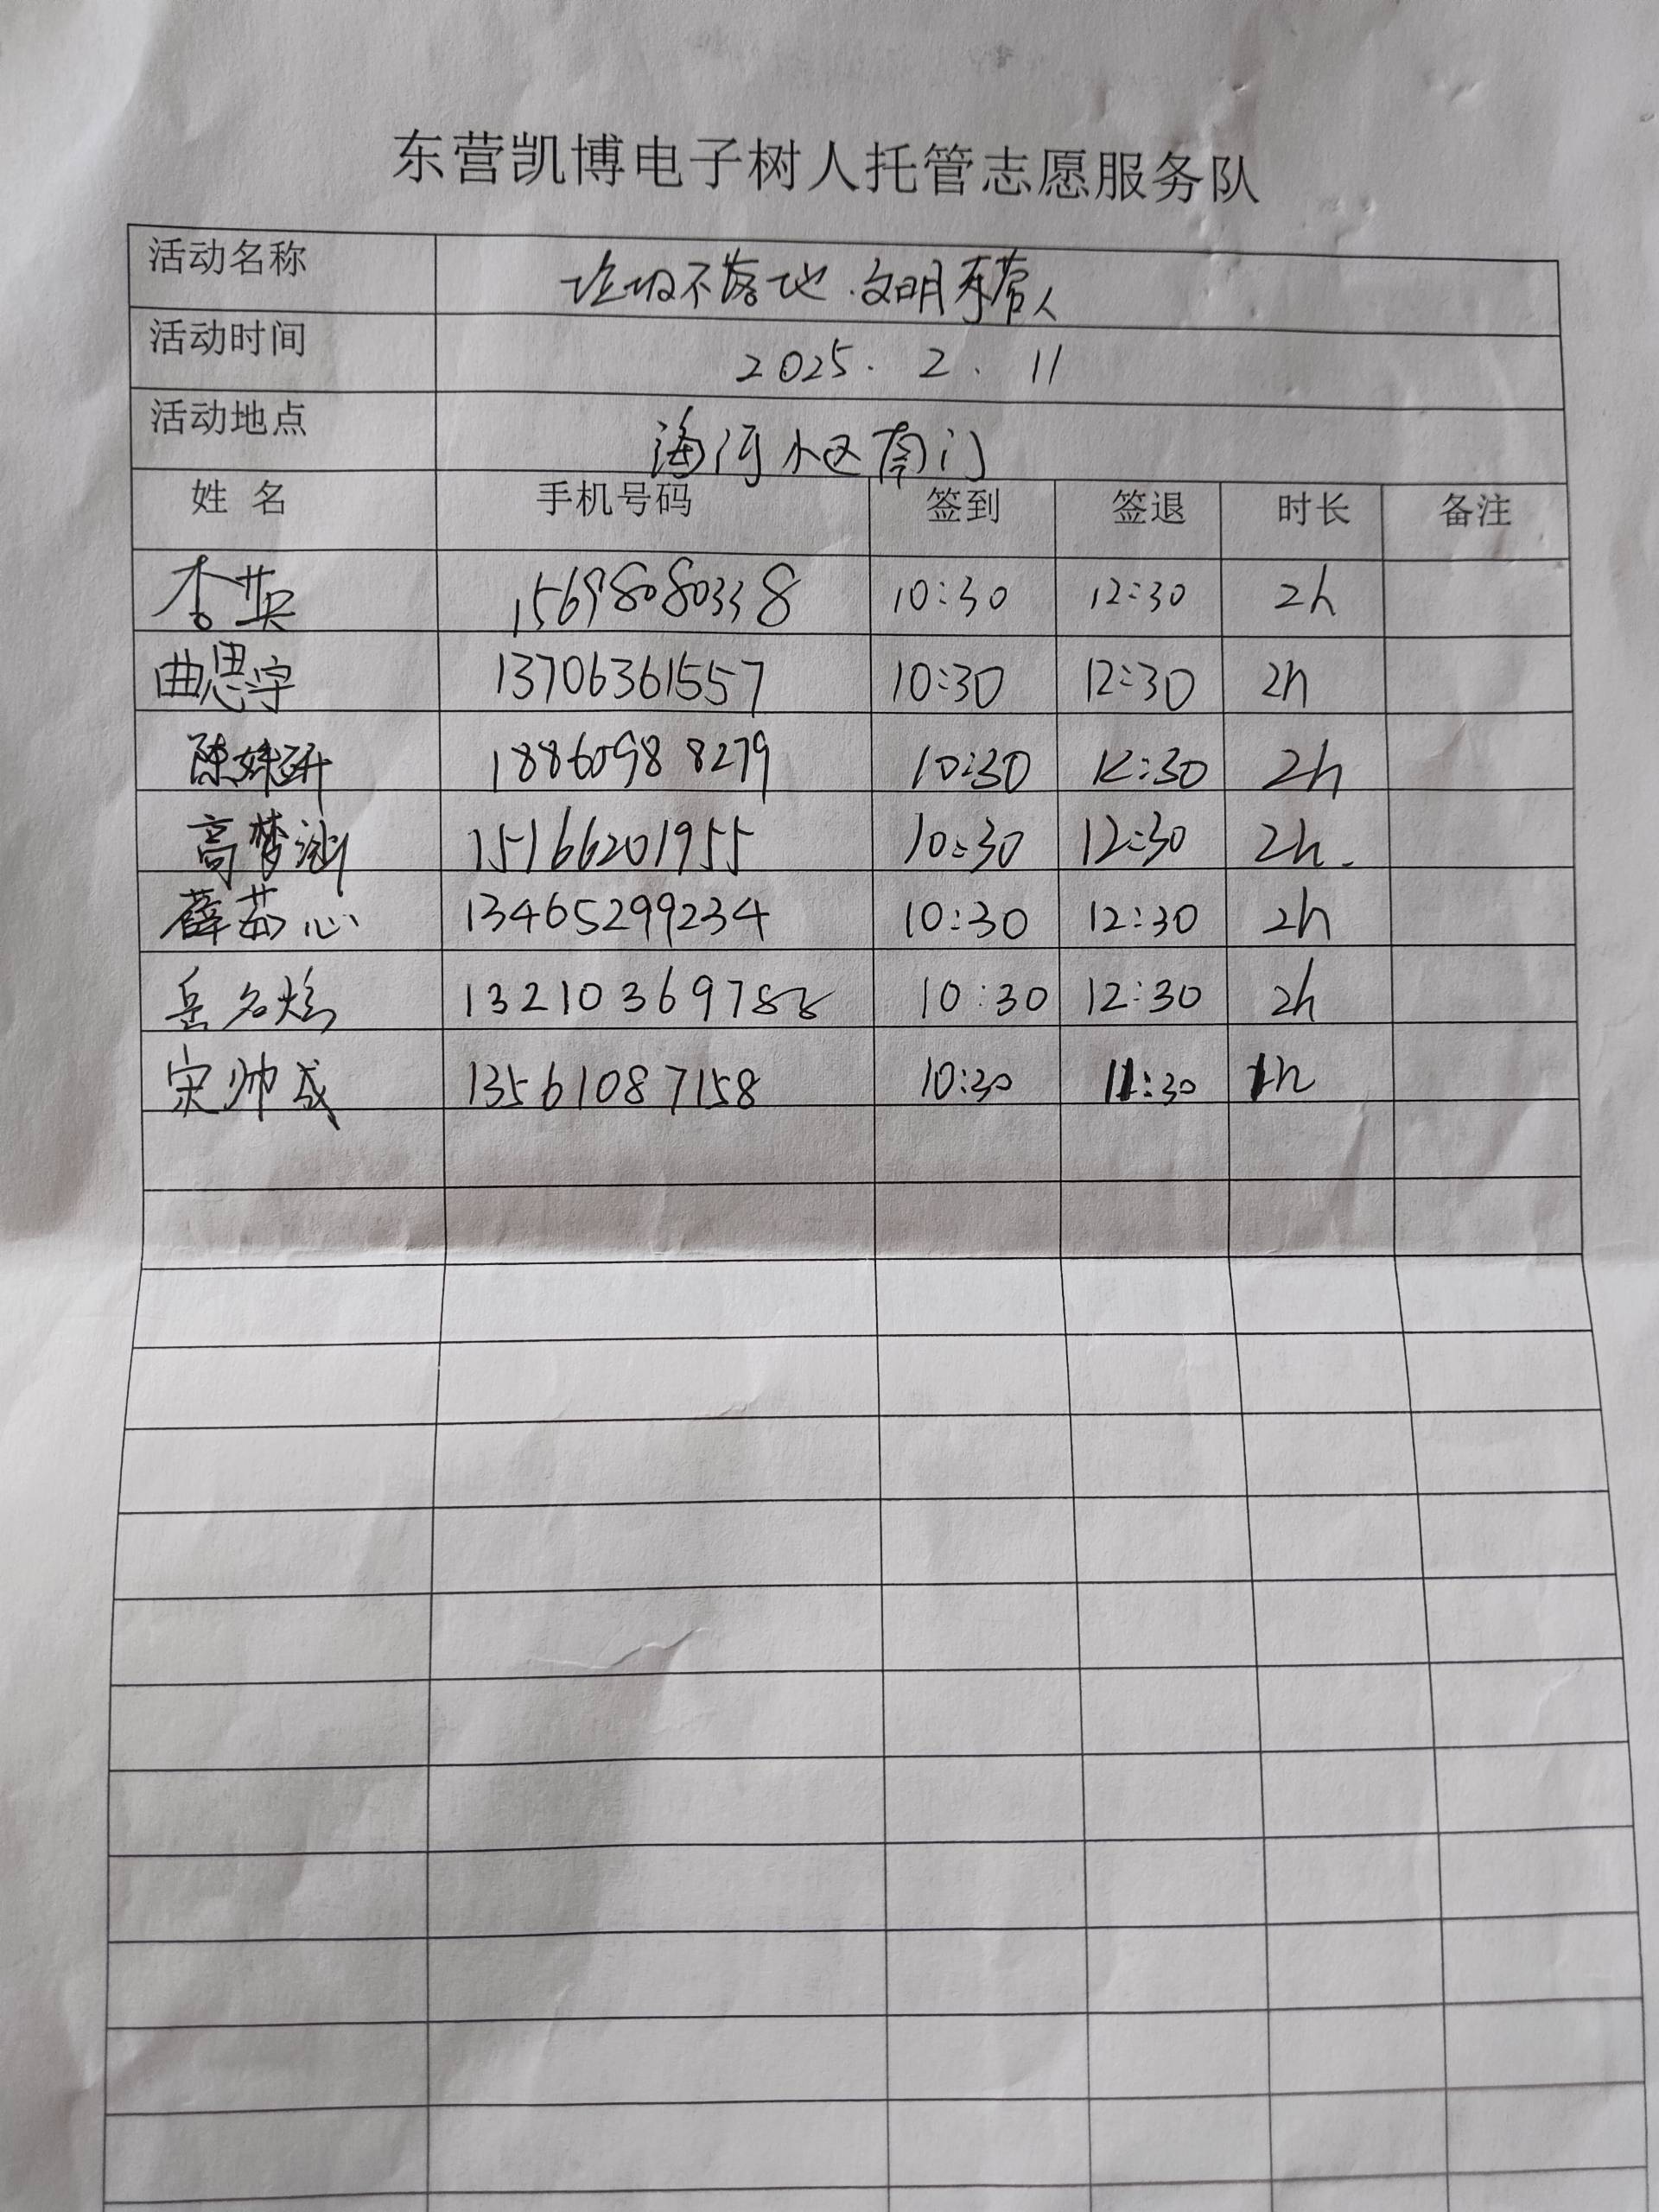 东营凯博电子树人托管志愿服务队
活动名称 垃圾不落地.文明东营人
活动时间 2025. 2. 11
活动地点 海河小区南门
姓 名 手机号码 签到 签退 时长 备注
李英 15698080338 10:30 12:30 2h
曲思宇 13706361557 10:30 12:30 2h
陈姝研 18860988279 10:30 12:30 2h
高梦 15166201955 10:30 12:30 2h.
薛茹心 13465299234 10:30 12:30 2h
岳名 10:30 12:30 2h
宋帅成 13561087158 10:30 11:30 1h